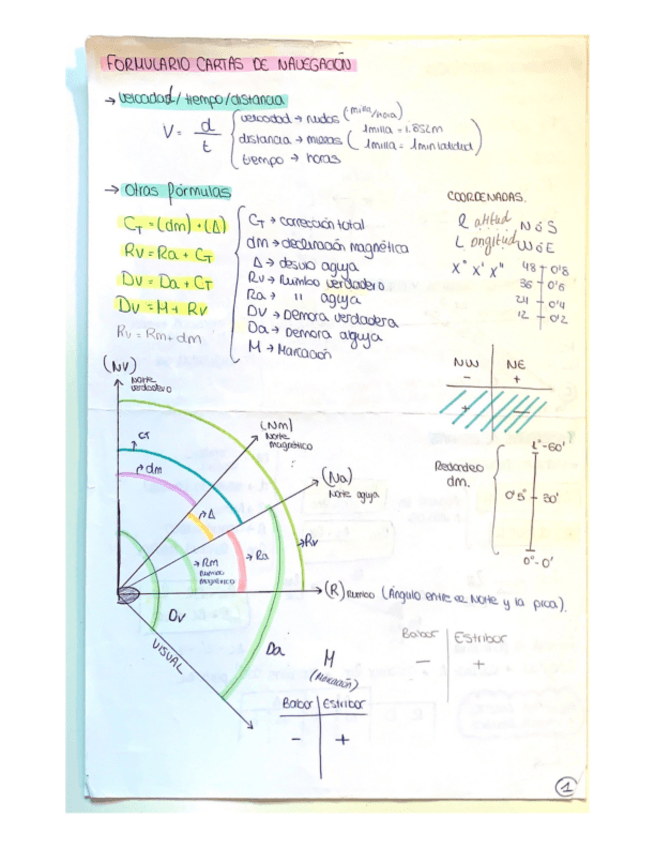 FORMULARIO CARTAS DE NAVEGACIÓN
→ velocidad/tiempo/distancia
V = d/t
velocidad → nudos (milla/hora)
distancia → millas (1milla = 1.852m
1milla = 1min latidud)
tiempo → horas
→ Otras fórmulas
CT = (dm) + (Δ)
Rv = Ra + CT
Dv = Da + CT
Dv = M + Rv
Rv = Rm + dm
CT → corrección total
dm → declinación magnética
Δ → desvio aguja
Rv → Rumbo verdadero
Ra → " aguja
DV → Demora verdadera
Da → Demora aguja
M → Marcación
COORDENADAS.
Latitud N ó S
Longitud W ó E
X° X' X"
48 0'8
36 0'6
24 0'4
12 0'2
NW NE
- +
+ -
Redondeo
dm.
1°-60'
0'5° 30'
0°-0'
(NV)
Norte
verdadero
(Nm)
Norte
magnético
(Na)
Norte aguja
CT
dm
Δ
Rv
Ra
Rm
Rumbo
magnético
(R) Rumbo (Ángulo entre el Norte y la proa).
Dv
VISUAL
Da
M
(Marcación)
Babor Estribor
- +
Babor Estribor
- +
1